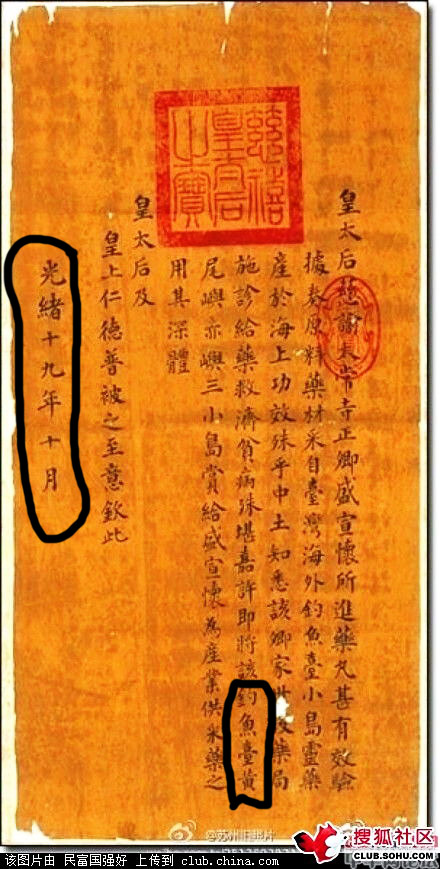 慈禧
皇太后
之寶
皇太后慈諭太常寺正卿盛宣懷所進藥丸甚有效驗
據奏原料藥材采自臺灣海外釣魚臺小島靈藥
產於海上功效殊乎中土知悉該卿家世設藥局
施診給藥救濟貧病殊堪嘉許即將該釣魚臺黃
尾嶼赤嶼三小島賞給盛宣懷為產業供采藥之
用其深體
皇太后及
皇上仁德普被之至意欽此
光緒十九年十月
@苏州旧照片
搜狐社区
CLUB.SOHU.COM
该图片由 民富国强好 上传到 club.china.com